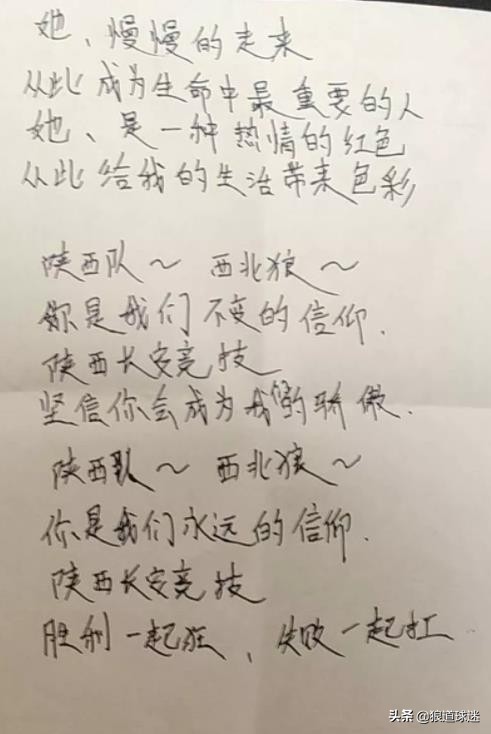 她、慢慢的走来
从此成为生命中最重要的人
她、是一种热情的红色
从此给我的生活带来色彩
陕西队～ 西北狼～
你是我们不变的信仰.
陕西长安竞技
坚信你会成为我们的骄傲.
陕西队～ 西北狼～
你是我们永远的信仰.
陕西长安竞技
胜利一起狂、失败一起扛
头条 @狼道球迷